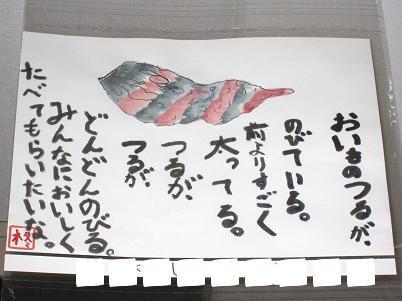 おいものつるが、
のびている。
前よりすごく
太ってる。
つるが、
つるが、
どんどんのびる。
みんなにおいしく
たべてもらいたいな。